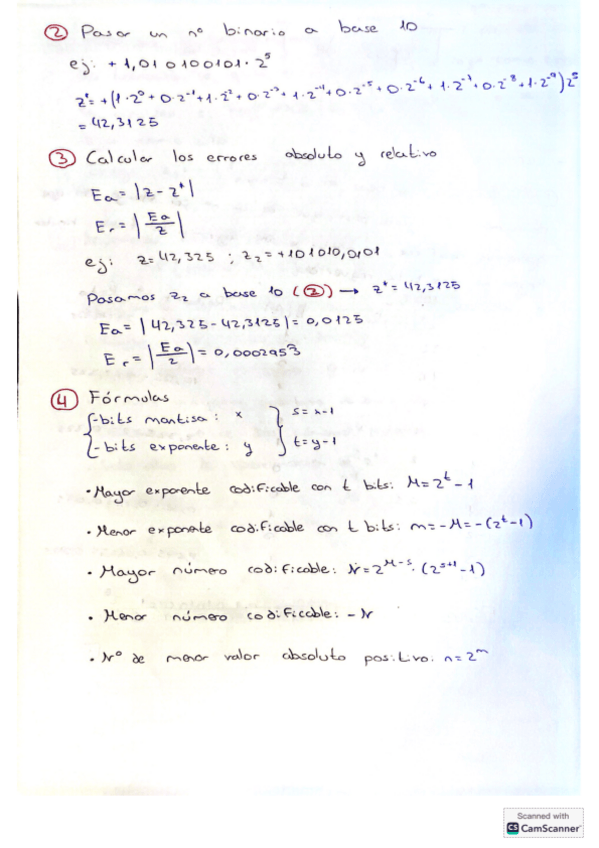 ② Pasar un nº binario a base 10
ej: +1,010100101·2⁵
z*=+(1·2⁰+0·2⁻¹+1·2⁻²+0·2⁻³+1·2⁻⁴+0·2⁻⁵+0·2⁻⁶+1·2⁻⁷+0·2⁻⁸+1·2⁻⁹)2⁵
= 42,3125
③ Calcular los errores absoluto y relativo
Ea = |z - z*|
Er = |Ea/z|
ej: z=42,325 ; z₂=+101010,0101
Pasamos z₂ a base 10 (②) → z* = 42,3125
Ea = |42,325-42,3125| = 0,0125
Er = |Ea/z| = 0,0002953
④ Fórmulas
-bits mantisa: x } s=x-1
-bits exponente: y } t=y-1
· Mayor exponente codificable con t bits: M=2ᵗ-1
· Menor exponente codificable con t bits: m=-M=-(2ᵗ-1)
· Mayor número codificable: N=2ᴹ⁻ˢ·(2ˢ⁺¹-1)
· Menor número codificable: -N
· Nº de menor valor absoluto positivo: n=2ᵐ
Scanned with
CS CamScanner